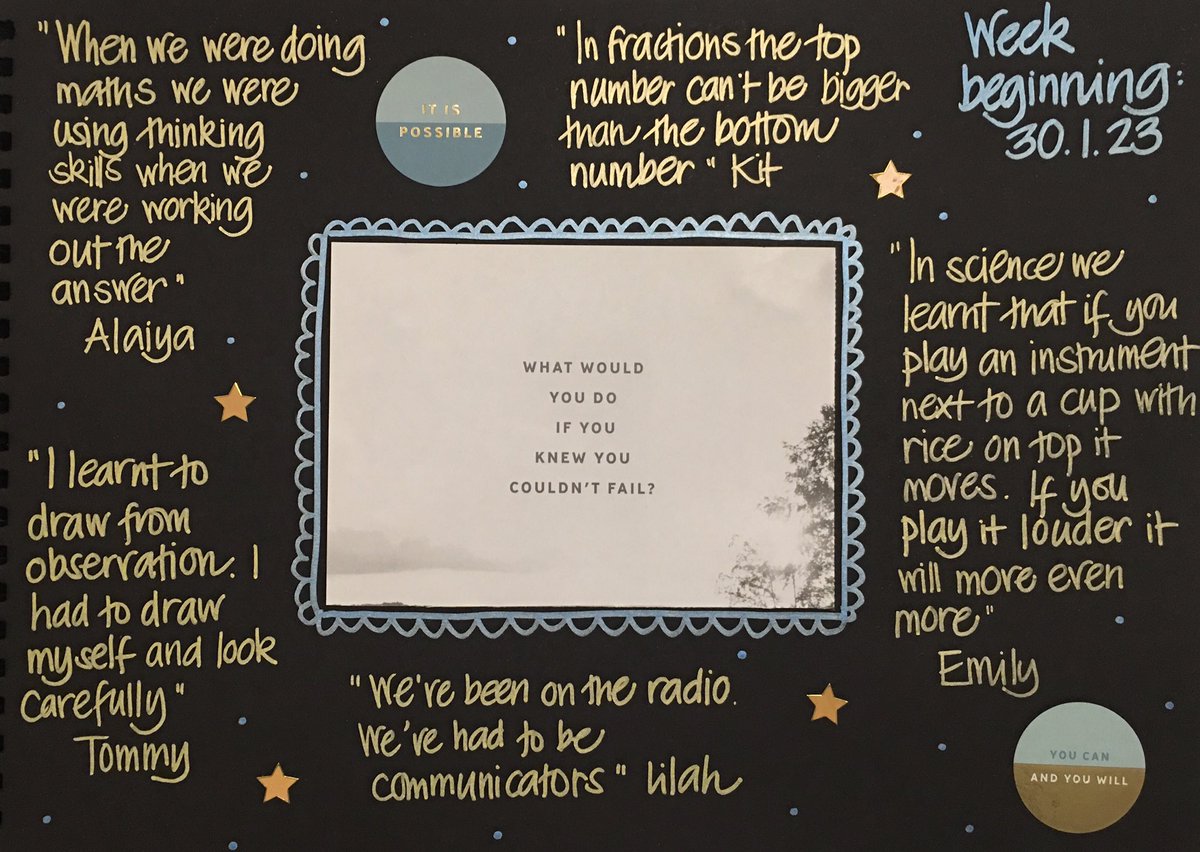 "When we were doing
maths we were
using thinking
skills when we
were working
out the
answer"
Alaiya
IT IS
POSSIBLE
"In fractions the top
number can't be bigger
than the bottom
number" Kit
Week
beginning:
30.1.23
WHAT WOULD
YOU DO
IF YOU
KNEW YOU
COULDN'T FAIL?
"In science we
learnt that if you
play an instrument
next to a cup with
rice on top it
moves. If you
play it louder it
will move even
more"
Emily
"I learnt to
draw from
observation. I
had to draw
myself and look
carefully"
Tommy
"We've been on the radio.
We've had to be
communicators" Lilah
YOU CAN
AND YOU WILL